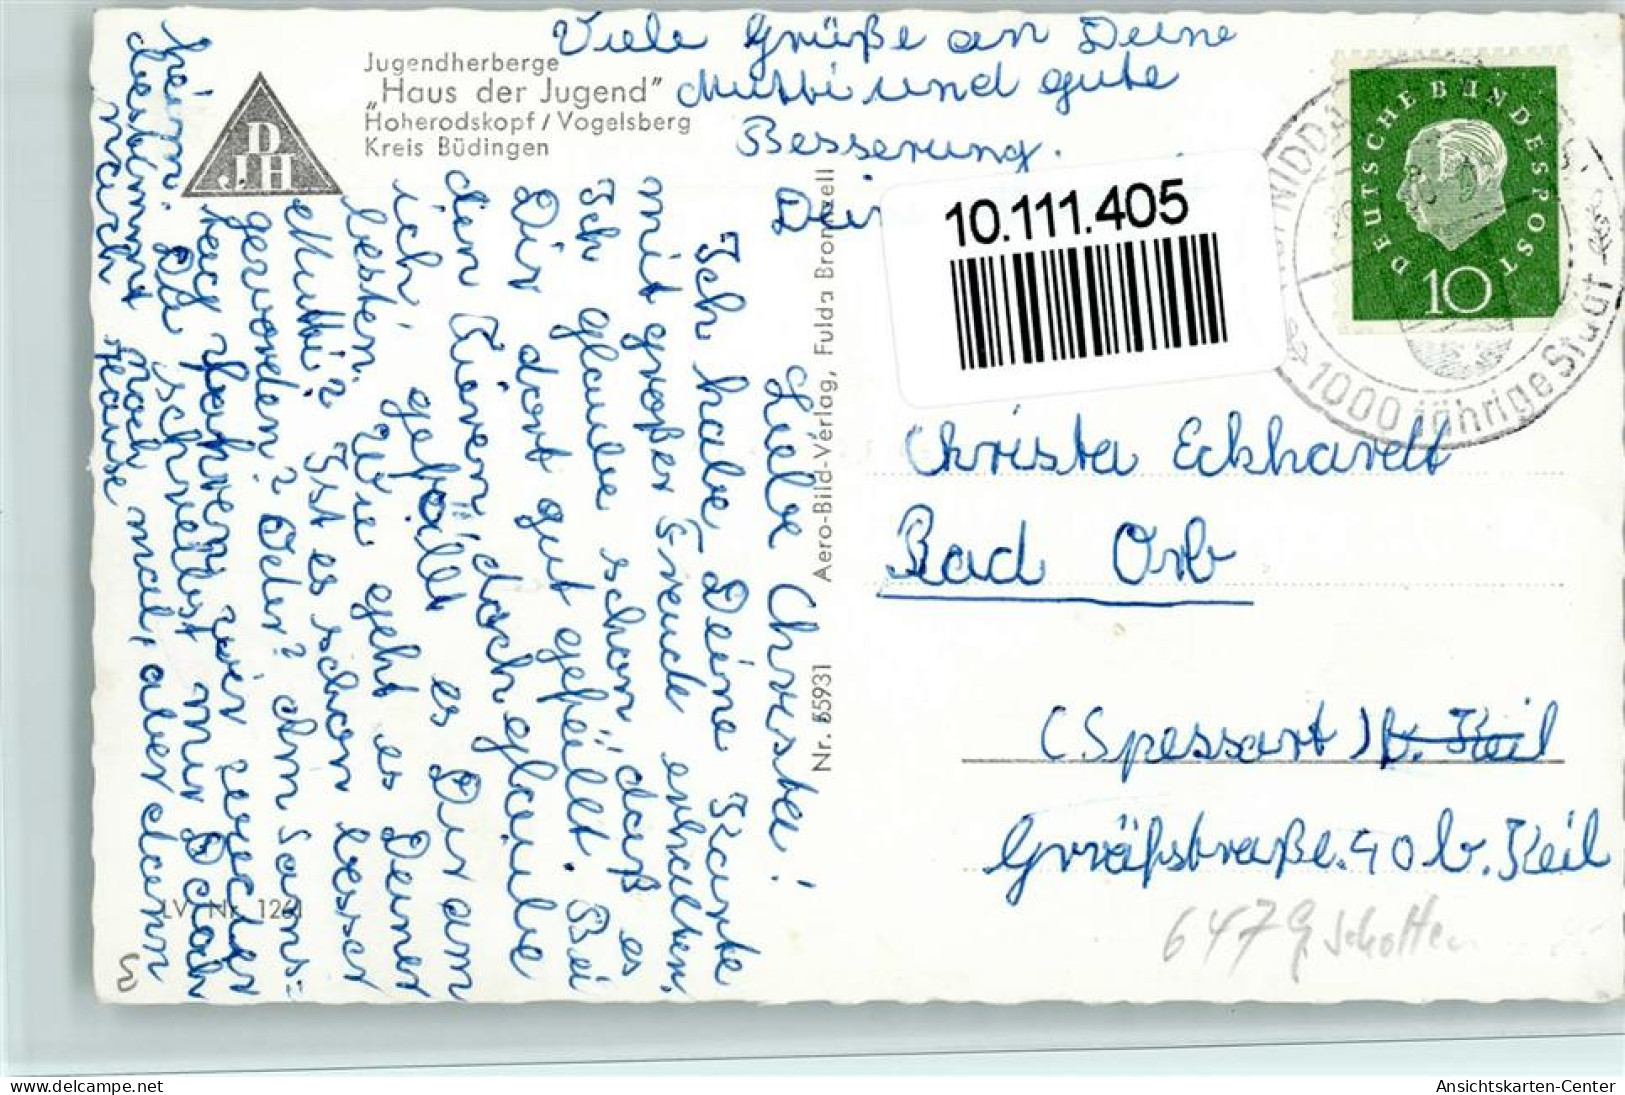 Jugendherberge
„Haus der Jugend”
Hoherodskopf / Vogelsberg
Kreis Büdingen
D
JH
Viele Grüße an Deine
Mutti und gute
Besserung.
10.111.405
DEUTSCHE BUNDESPOST
10
1000 jährige Stadt
Liebe Christa!
Ich habe Deine Karte
mit großer Freude erhalten.
Ich glaube schon, daß es
Dir dort gut gefällt. Bei
den Tieren, doch glaube
ich, gefällt es Dir am
besten. Wie geht es Deiner
Mutti? Ist es schon besser
geworden? Oder? Am Sams-
tag fahren wir wieder
heim. Du schreibst mir doch
bestimmt noch mal, aber dann
nach Hause
Nr. 65931
Aero-Bild-Verlag, Fulda Bronnzell
Christa Eckhardt
Bad Orb
(Spessart) b. Keil
Gräfstraße. 40 b. Keil
6479 Schotten
LV. Nr. 1261
delcampe.net
Ansichtskarten-Center